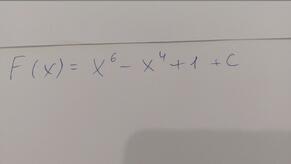 F(x) = x⁶ - x⁴ + 1 + C